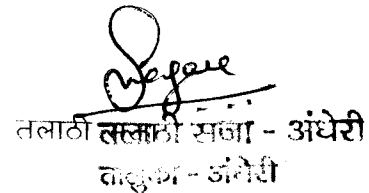 तलाठी तलाठी सजा - अंधेरी
तालुका - अंधेरी